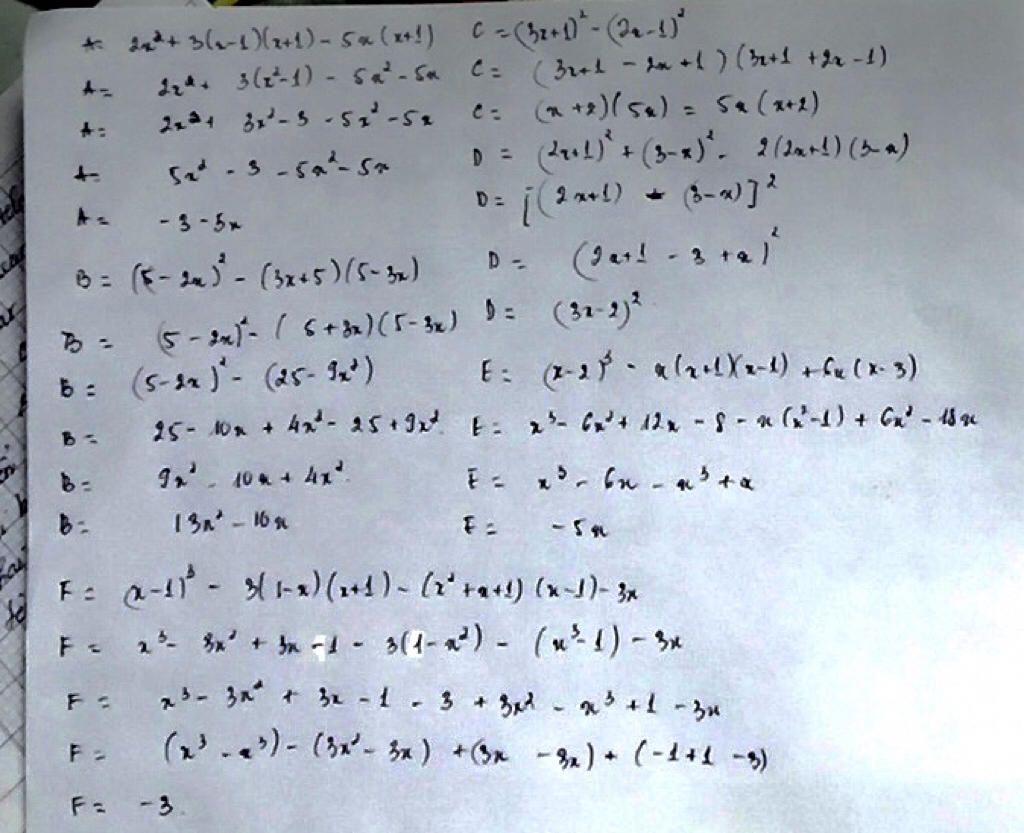 A= 2x² + 3(x-1)(x+1) - 5x(x+1)
A= 2x² + 3(x²-1) - 5x² - 5x
A= 2x² + 3x² - 3 - 5x² - 5x
A= 5x² - 3 - 5x² - 5x
A= -3 - 5x
B = (5 - 2x)² - (3x+5)(5-3x)
B = (5 - 2x)² - (5+3x)(5-3x)
B = (5-2x)² - (25 - 9x²)
B = 25 - 10x + 4x² - 25 + 9x²
B = 9x² - 10x + 4x²
B = 13x² - 10x
C = (3x+1)² - (2x-1)²
C = (3x+1 - 2x+1)(3x+1 +2x-1)
C = (x+2)(5x) = 5x(x+2)
D = (2x+1)² + (3-x)² - 2(2x+1)(3-x)
D = [(2x+1) - (3-x)]²
D = (2x+1 - 3 + x)²
D = (3x-2)²
E = (x-2)³ - x(x+1)(x-1) + 6x(x-3)
E = x³ - 6x² + 12x - 8 - x(x²-1) + 6x² - 18x
E = x³ - 6x - x³ + x
E = -5x
F = (x-1)³ - 3(1-x)(x+1) - (x²+x+1)(x-1) - 3x
F = x³ - 3x² + 3x - 1 - 3(1-x²) - (x³-1) - 3x
F = x³ - 3x² + 3x - 1 - 3 + 3x² - x³ + 1 - 3x
F = (x³ - x³) - (3x² - 3x) + (3x - 3x) + (-1+1 -3)
F = -3